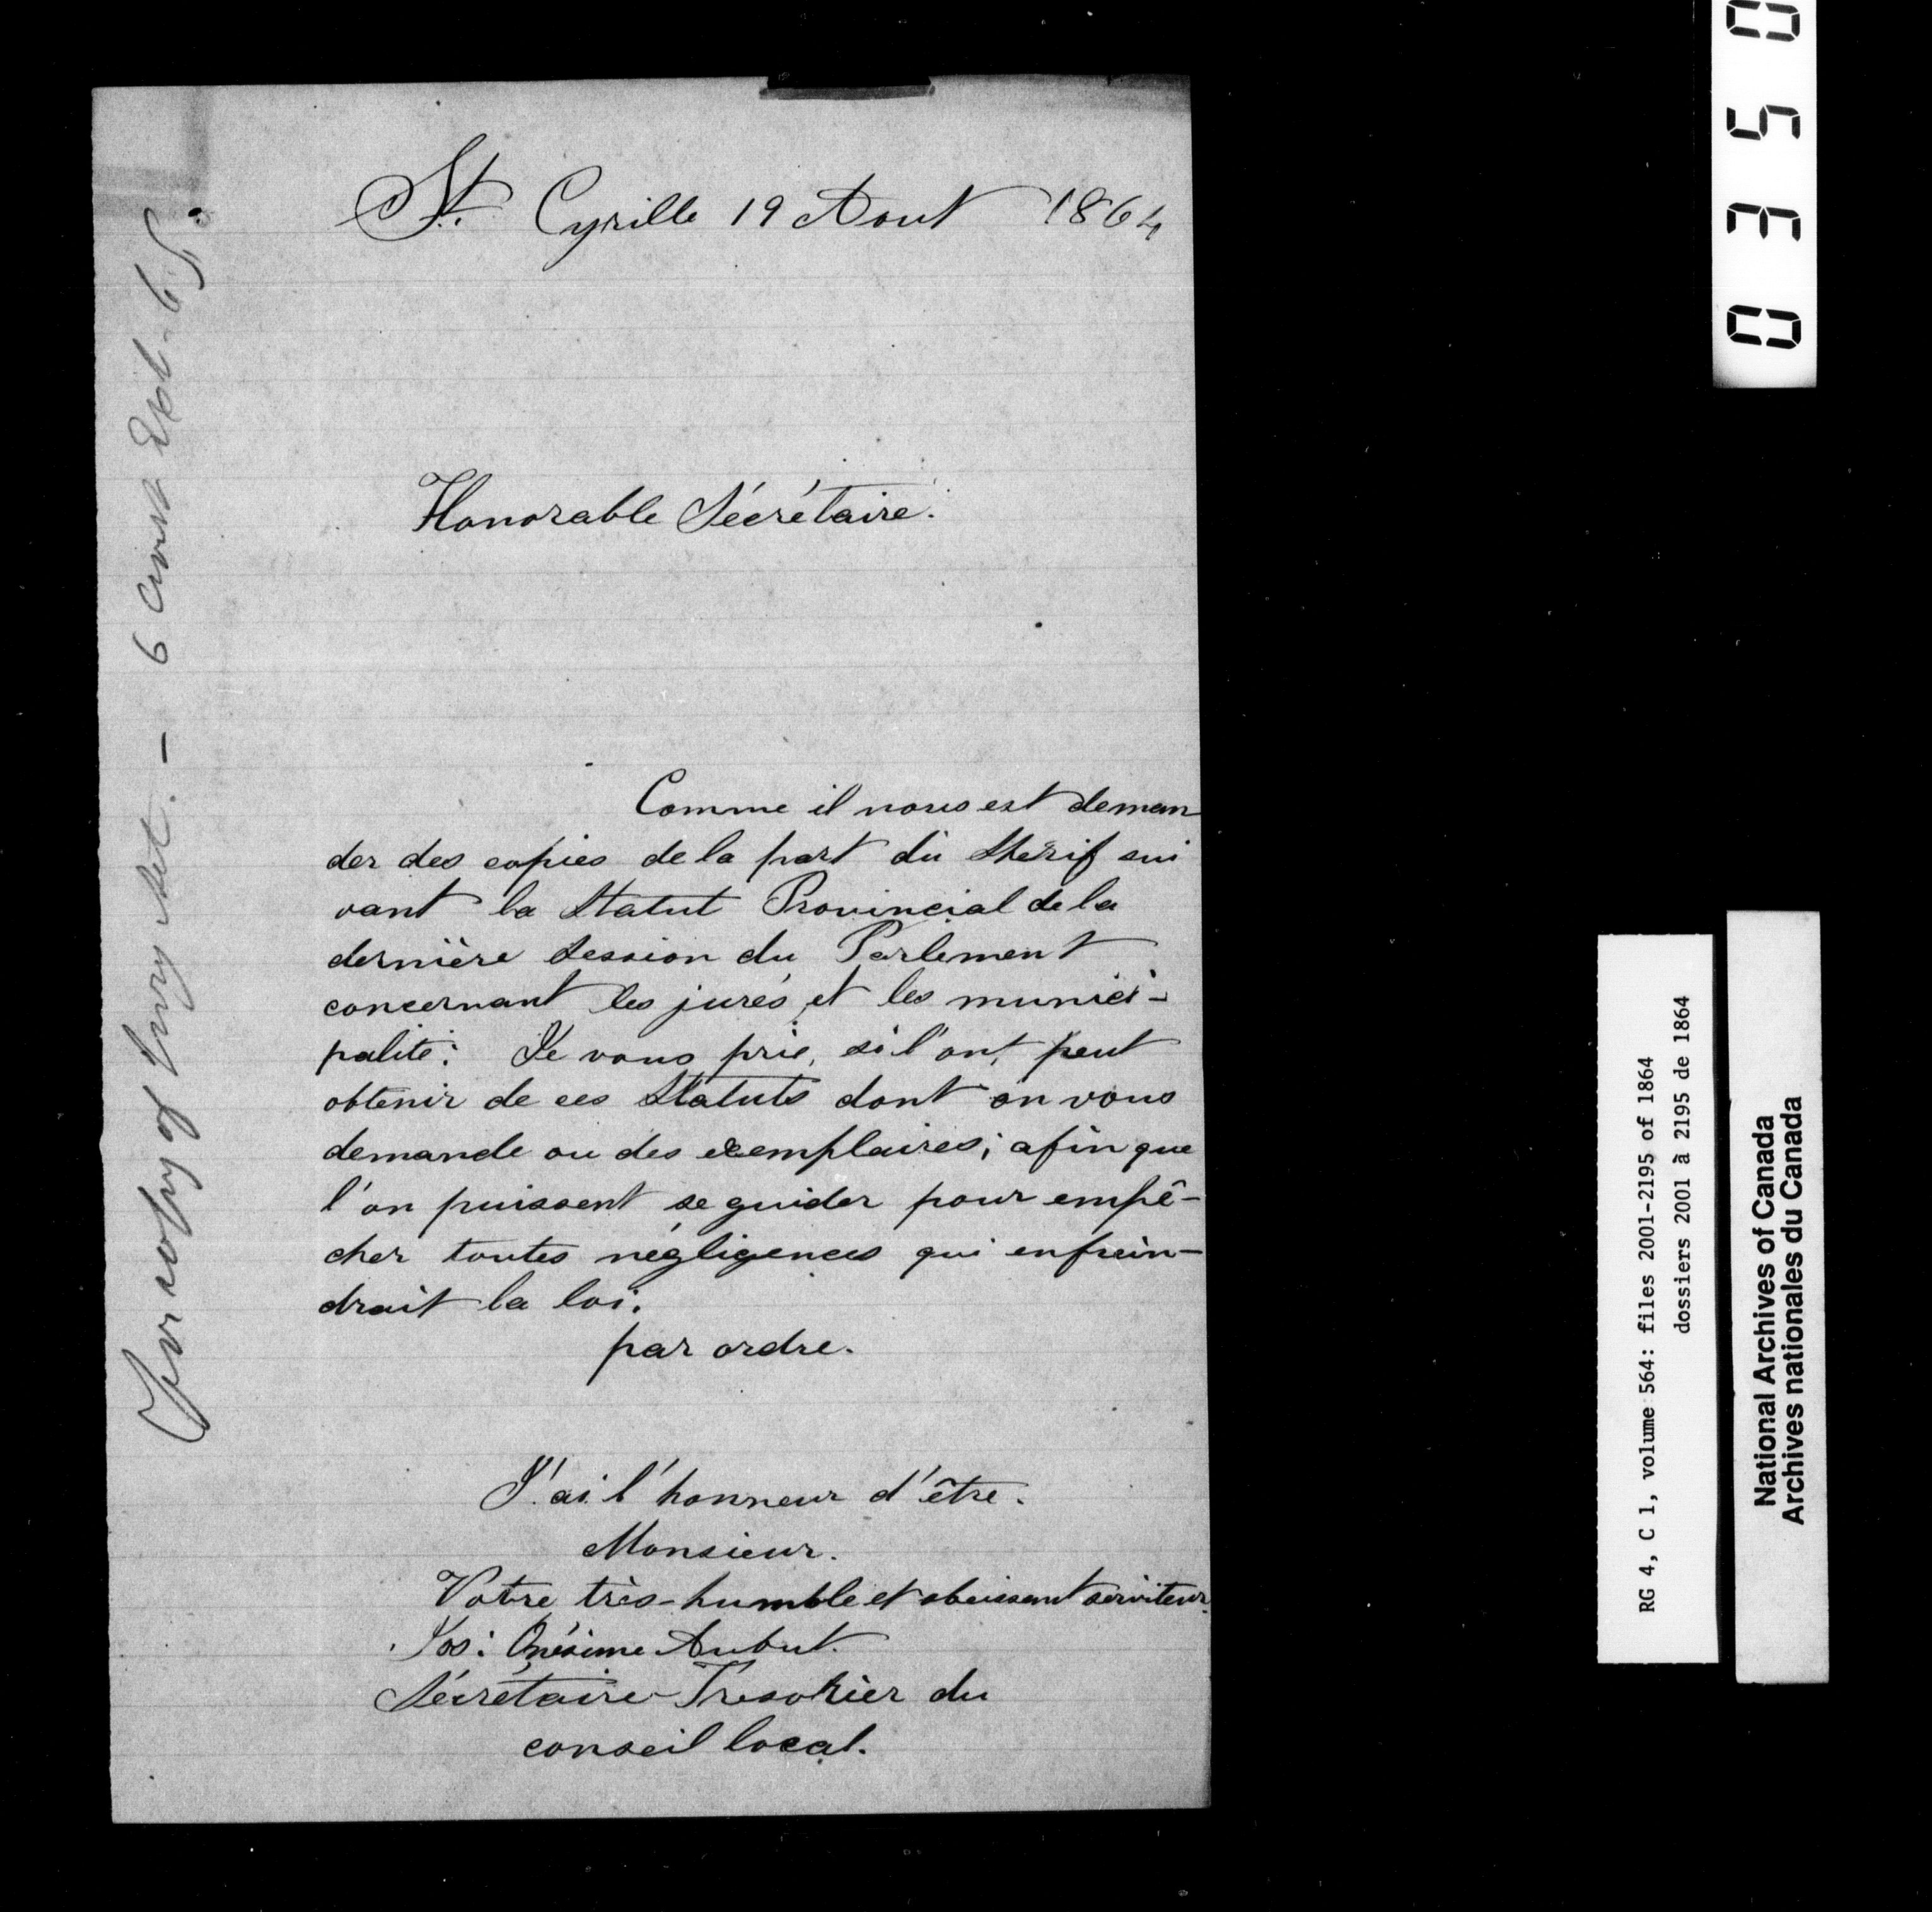 St. Cyrille 19 Aout 1864
Honorable Sécrétaire.
Comme il nous est deman
der des copies de la part du Shérif sui
vant la Statut Provincial de la
dernière Session du Parlement
concernant les jurés et les munici-
palité: Je vous prie, si l'ont peut
obtenir de ces Statuts dont on vous
demande ou des exemplaires; afin que
l'on puissent se guider pour empê-
cher toutes négligences qui enfrein-
drait la loi.
par ordre.
J'ai l'honneur d'être.
Monsieur.
Votre très-humble et obeissant serviteur.
Jos: Onésime Aubut.
Sécrétaire-Trésorier du
conseil local.
For copy of Jury Act. - 6
0350
RG 4, C 1, volume 564: files 2001-2195 of 1864
dossiers 2001 à 2195 de 1864
National Archives of Canada
Archives nationales du Canada